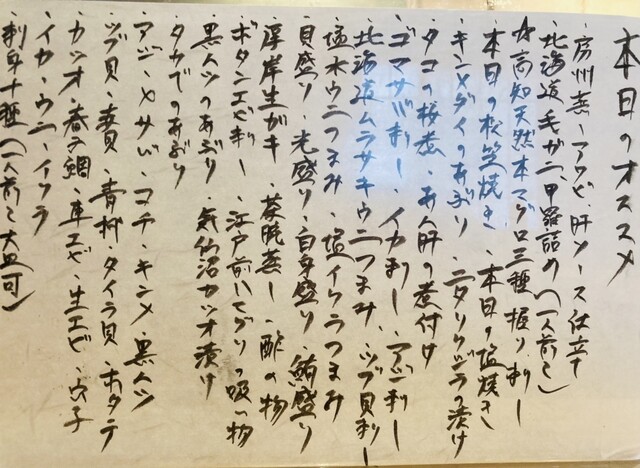 本日のオススメ
・房州蒸しアワビ・肝ソース仕立て
・北海道毛ガニ甲羅詰め(一人前〜)
☆高知天然本マグロ三種握り・刺し
・本日の松笠焼き・本日の塩焼き
・キンメダイのあぶり・ニタリクジラの漬け
・タコの桜煮・あん肝の煮付け
・ゴマサバ刺し・イカ刺し・アジ刺し
・北海道ムラサキウニつまみ・ツブ貝刺し
・塩水ウニつまみ・塩イクラつまみ
・貝盛り・光盛り・白身盛り・鮪盛り
・厚岸生ガキ・茶碗蒸し・酢の物
・ボタンエビ刺し・江戸前ハマグリの吸い物
・黒ムツのあぶり・気仙沼カツオ漬け
・タカベのあぶり
・アジ・メサバ・コチ・キンメ・黒ムツ
・ツブ貝・赤貝・青柳・タイラ貝・ホタテ
・カツオ・春子鯛・車エビ・生エビ・穴子
・イカ・ウニ・イクラ
・刺身十種(一人前〜大皿可)